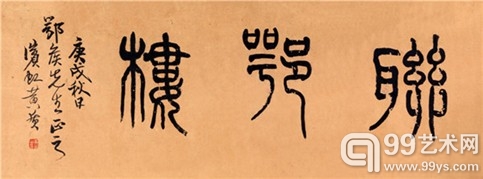 聯鄂樓
庚戌秋日
鄂矦先生正之
濱虹黄質
99艺术网
www.99ys.com